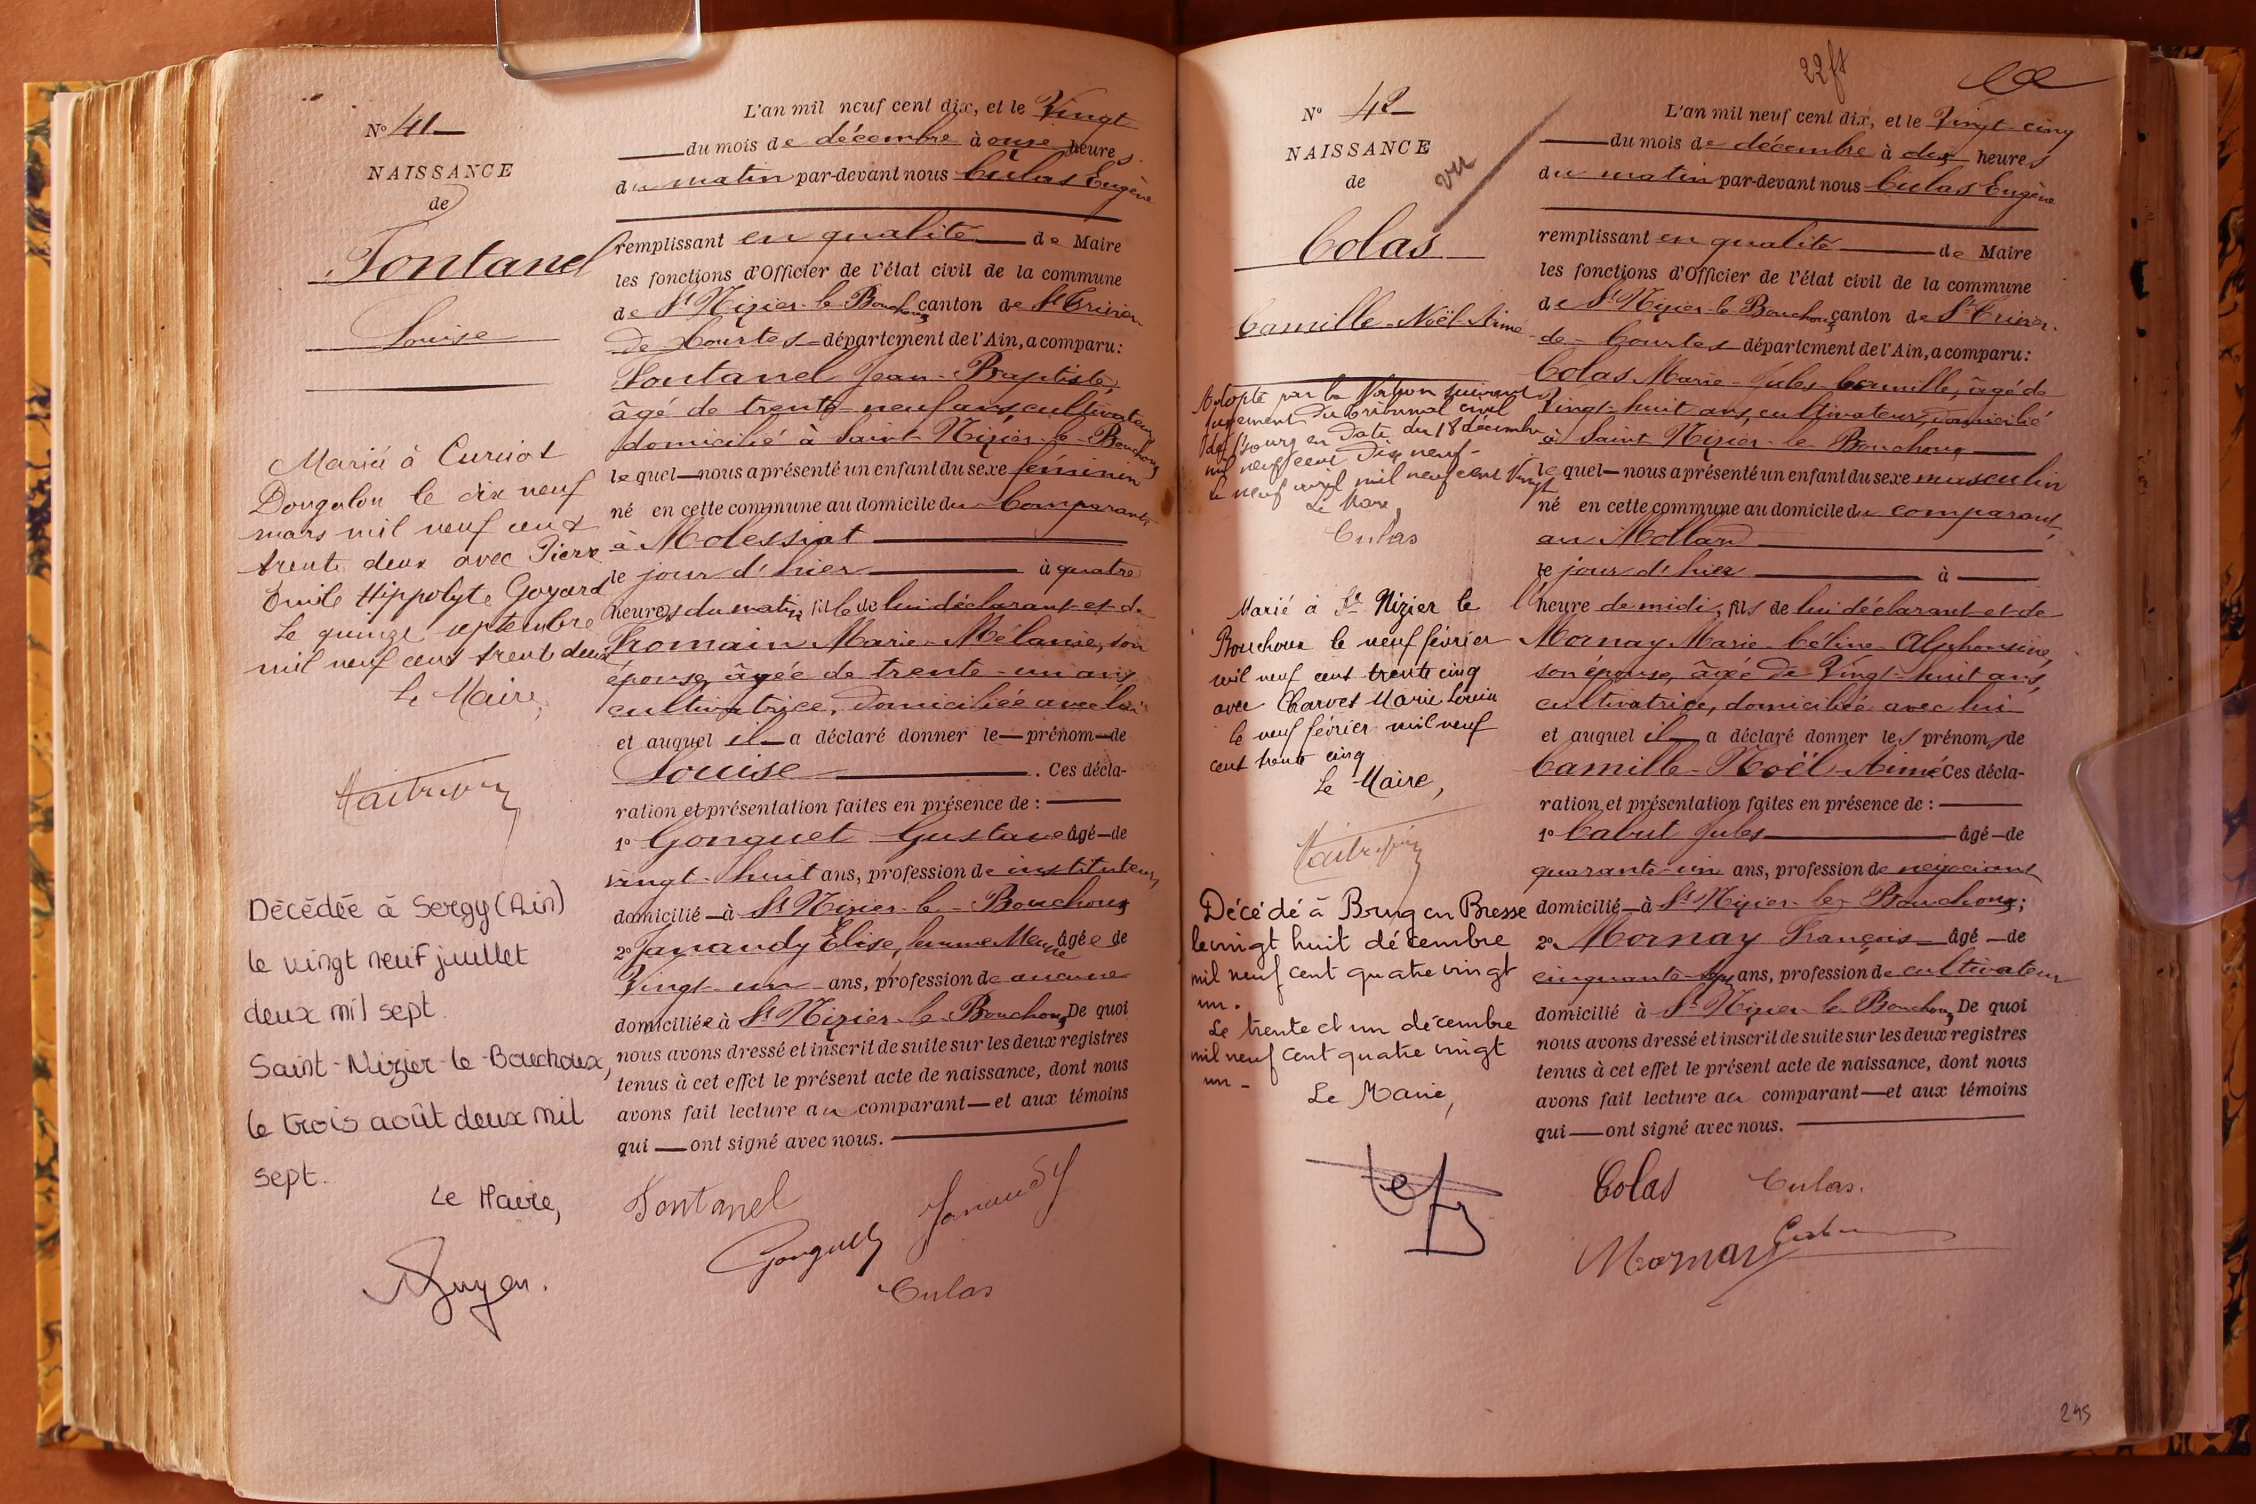 N° 41
NAISSANCE
de
Fontanel
Louise
Marié à Curciat
Dongalon le dix neuf
mars mil neuf cent
trente deux avec Pierre
Emile Hippolyte Goyard
Le quinze septembre
mil neuf cent trente deux
Le Maire,
Décédée à Sergy (Ain)
le vingt neuf juillet
deux mil sept.
Saint-Nizier-le-Bouchoux,
le trois août deux mil
sept.
Le Maire,
L'an mil neuf cent dix, et le Vingt
du mois de décembre à onze heures
du matin par-devant nous Culas Eugène
remplissant en qualité de Maire
les fonctions d'Officier de l'état civil de la commune
de St Nizier-le-Bouchoux canton de St Trivier
de Courtes département de l'Ain, a comparu :
Fontanel Jean-Baptiste,
âgé de trente-neuf ans, cultivateur
domicilié à Saint-Nizier-le-Bouchoux
lequel nous a présenté un enfant du sexe féminin
né en cette commune au domicile du Comparant
à Molessiat
le jour d'hier à quatre
heures du matin, fille de lui déclarant et de
Romain Marie-Mélanie, son
épouse, âgée de trente-un ans
cultivatrice, domiciliée avec lui
et auquel il a déclaré donner le prénom de
Louise . Ces décla-
ration et présentation faites en présence de :
1° Gonguet Gustave âgé de
vingt-huit ans, profession de instituteur,
domicilié à St Nizier-le-Bouchoux
2° Janaudy Elise, femme âgée de
Vingt-un ans, profession de aucune
domiciliée à St Nizier-le-Bouchoux De quoi
nous avons dressé et inscrit de suite sur les deux registres
tenus à cet effet le présent acte de naissance, dont nous
avons fait lecture au comparant et aux témoins
qui ont signé avec nous.
Fontanel
Janaudy
Gonguet
Culas
22 ft
N° 42
NAISSANCE
de
vu
Colas
Camille-Noël-Aimé
Adopté par la Nation suivant
jugement du tribunal civil
de Bourg en date du 18 décembre
mil neuf cent dix neuf.
Le neuf avril mil neuf cent Vingt
Le Maire,
Culas
Marié à St Nizier le
Bouchoux le neuf février
mil neuf cent trente cinq
avec Charvet Marie Louise
le neuf février mil neuf
cent trente cinq
Le Maire,
Décédé à Bourg en Bresse
le vingt huit décembre
mil neuf cent quatre vingt
un.
Le trente et un décembre
mil neuf cent quatre vingt
un -
Le Maire,
L'an mil neuf cent dix, et le Vingt-cinq
du mois de décembre à dix heures
du matin par-devant nous Culas Eugène
remplissant en qualité de Maire
les fonctions d'Officier de l'état civil de la commune
de St Nizier-le-Bouchoux canton de St Trivier-
de-Courtes département de l'Ain, a comparu :
Colas Marie-Jules-Camille, âgé de
Vingt-huit ans, cultivateur, domicilié
à Saint Nizier-le-Bouchoux
lequel nous a présenté un enfant du sexe masculin
né en cette commune au domicile du comparant,
au Mollard
le jour d'hier à
l'heure de midi, fils de lui déclarant et de
Mornay Marie-Céline-Alphonsine,
son épouse, âgée de Vingt-huit ans,
cultivatrice, domiciliée avec lui
et auquel il a déclaré donner les prénoms de
Camille-Noël-Aimé Ces décla-
ration et présentation faites en présence de :
1° Cabut Jules âgé de
quarante-un ans, profession de négociant
domicilié à St Nizier-le-Bouchoux ;
2° Mornay François âgé de
cinquante- ans, profession de cultivateur
domicilié à St Nizier-le-Bouchoux De quoi
nous avons dressé et inscrit de suite sur les deux registres
tenus à cet effet le présent acte de naissance, dont nous
avons fait lecture au comparant et aux témoins
qui ont signé avec nous.
Colas
Culas.
Mornay
245